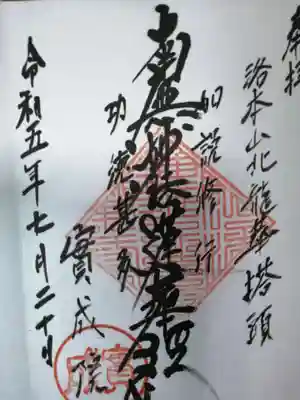 奉拝
洛本山北龍華塔頭
如説修行
南無妙法蓮華経
功德甚多
實成院
令和五年七月二十日